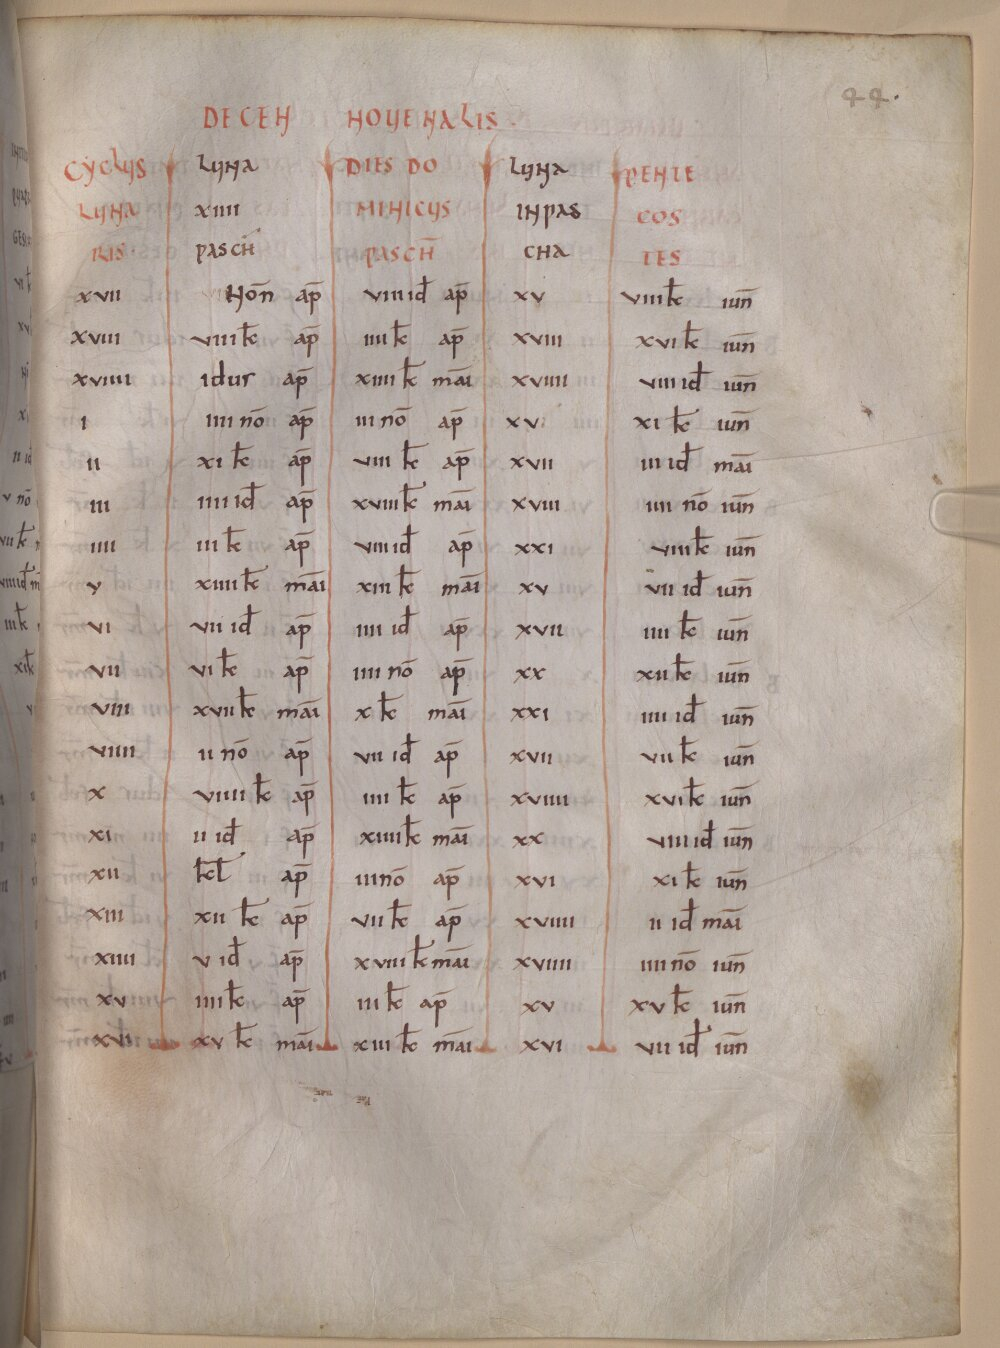 44.
DECEN NOVENALIS.
CYCLUS LUNA DIES DO LUNA PENTE
LUNA XIIII MINICUS INPAS COS
RIS· PASCH̄ PASCH̄ CHA TES
xvii Nōn ap̄ viiii id̄ ap̄ xv viiii kē iun̄
xviii viiii kē ap̄ iiii kē ap̄ xviii xvi kē iun̄
xviiii idus ap̄ xiiii kē māi xviiii viiii id̄ iun̄
i iiii nō ap̄ iii nō ap̄ xv xi kē iun̄
ii xi kē ap̄ viii kē ap̄ xvii iiii id̄ māi
iii iiii id̄ ap̄ xviii kē māi xviii iiii nō iun̄
iiii iii kē ap̄ viiii id̄ ap̄ xxi viiii kē iun̄
v xiiii kē māi xiii kē māi xv vii id̄ iun̄
vi vii id̄ ap̄ iiii id̄ ap̄ xvii iiii kē iun̄
vii vi kē ap̄ iiii nō ap̄ xx xii kē iun̄
viii xvii kē māi x kē māi xxi iiii id̄ iun̄
viiii ii nō ap̄ vii id̄ ap̄ xvii vii kē iun̄
x viiii kē ap̄ iiii kē ap̄ xviiii xvi kē iun̄
xi ii id̄ ap̄ xiiii kē māi xx viiii id̄ iun̄
xii kēl ap̄ iii nō ap̄ xvi xi kē iun̄
xiii xii kē ap̄ vii kē ap̄ xviiii ii id̄ māi
xiiii v id̄ ap̄ xviii kē māi xviiii iiii nō iun̄
xv iiii kē ap̄ iii kē ap̄ xv xv kē iun̄
xvi xv kē māi xiii kē māi xvi vii id̄ iun̄